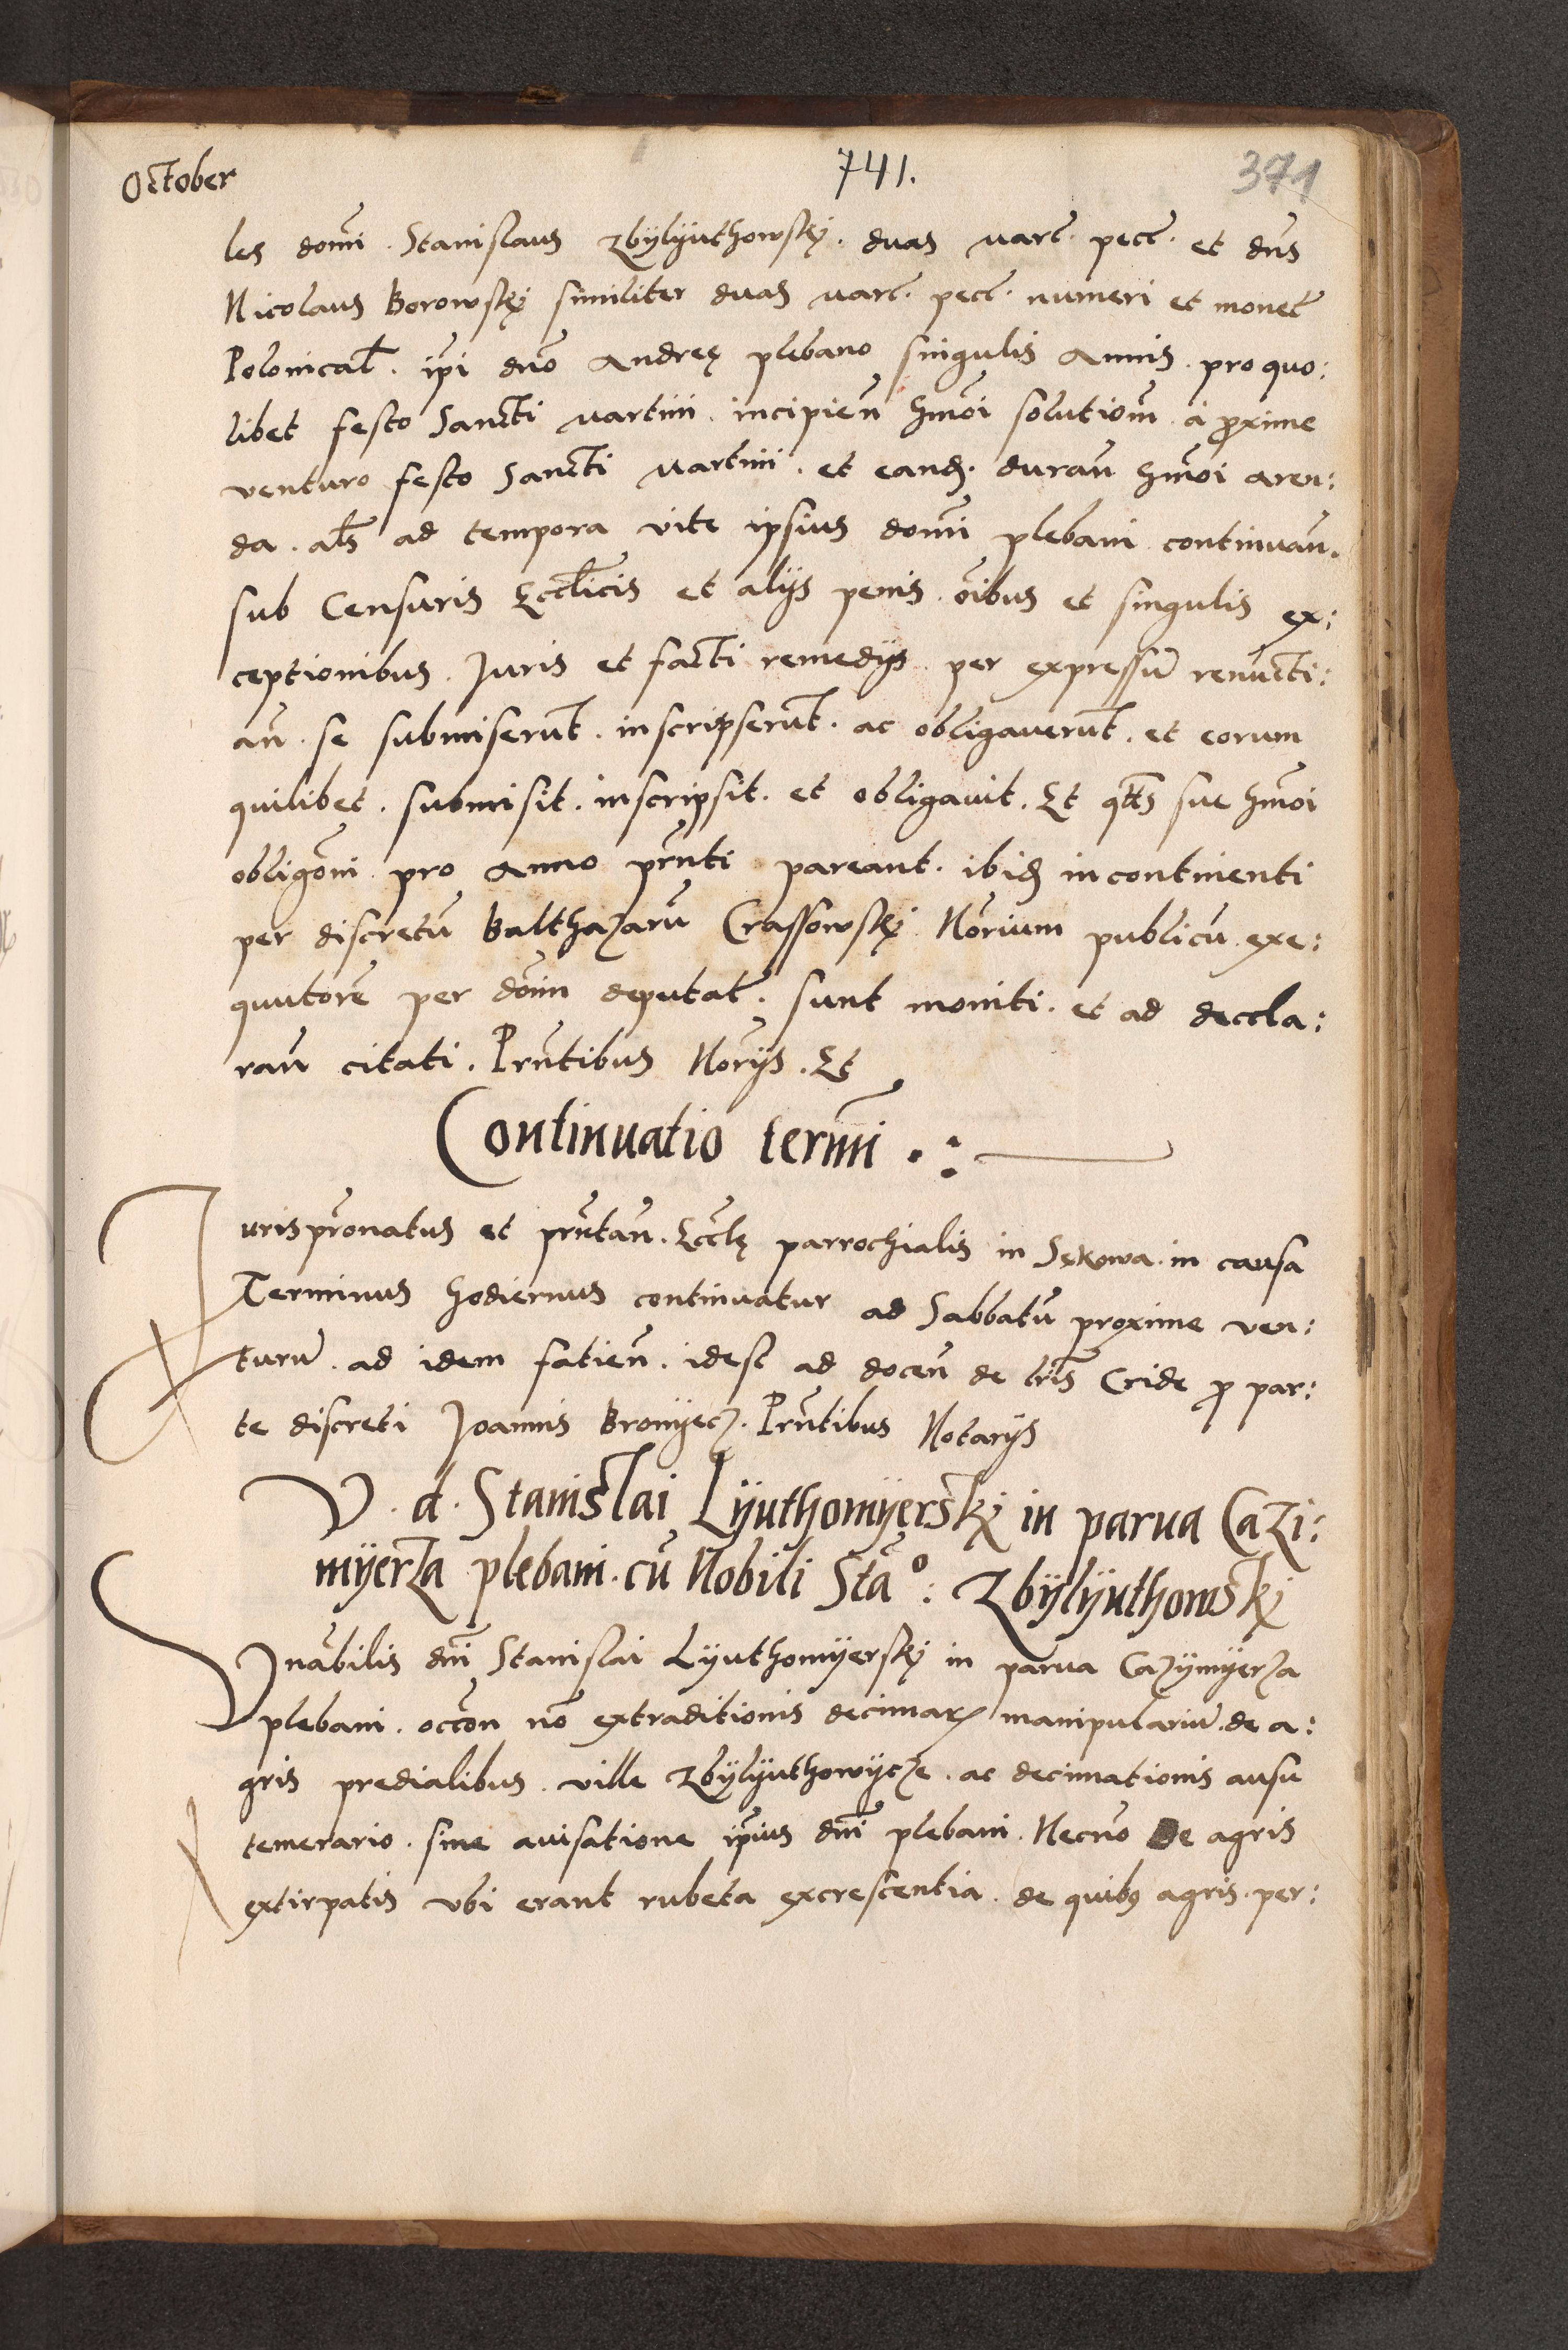 October
741.
371
les domi. Stanislaus Zbylyuthowskj. duas marc. pecc. et dns
Nicolaus Borowskj similiter duas marc. pecc. numeri et monet
Polonical. ipi dno Andreę plebano singulis Annis. pro quo:
libet festo Sancti Martini. incipien hmoi solutiom. à proxime
venturo festo Sancti Martini. et eand. duran hmoi aren:
da. als ad tempora vite ipsius domi plebani continuan.
sub Censuris Eccticis et alijs penis. oibus et singulis ex:
ceptionibus. Juris et facti remedijs. per expressu renucti:
an. se submiserut. inscripserut. ac obligauerut. et eorum
quilibet. submisit. inscripsit. et obligauit. Et qtts sue hmoi
obligoni pro Anno prnti pareant. ibid incontinenti
per discretu Balthazaru Crassowskj Norium publicu exe:
quutore per dom deputat. sunt moniti. et ad deccla:
ran citati. Prntibus Norijs. Et
Continuatio termi . :
Jurispronatus et prntan. Ecclę parrochialis in Sękowa. in causa
Terminus hodiernus continuatur ad Sabbatu proxime ven:
turu. ad idem fatien. idest ad docen de lris Cride p par:
te discreti Joannis Bronyecz. Prntibus Notarijs
V. d. Stanislai Lyuthomyerskj in parua Cazi:
myerza plebani. cu Nobili Sta°: Zbylyuthowskj
Vnabilis dni Stanislai Lyuthomyerskj in parua Cazymyerza
plebani. occon no extraditionis decimar manipulariu. de a:
gris predialibus. ville Zbylyuthowycze. ac decimationis ausu
temerario. sine auisatione ipius dni plebani. Necno De agris
extirpatis vbi erant rubeta excrescentia. de quib9 agris. per: